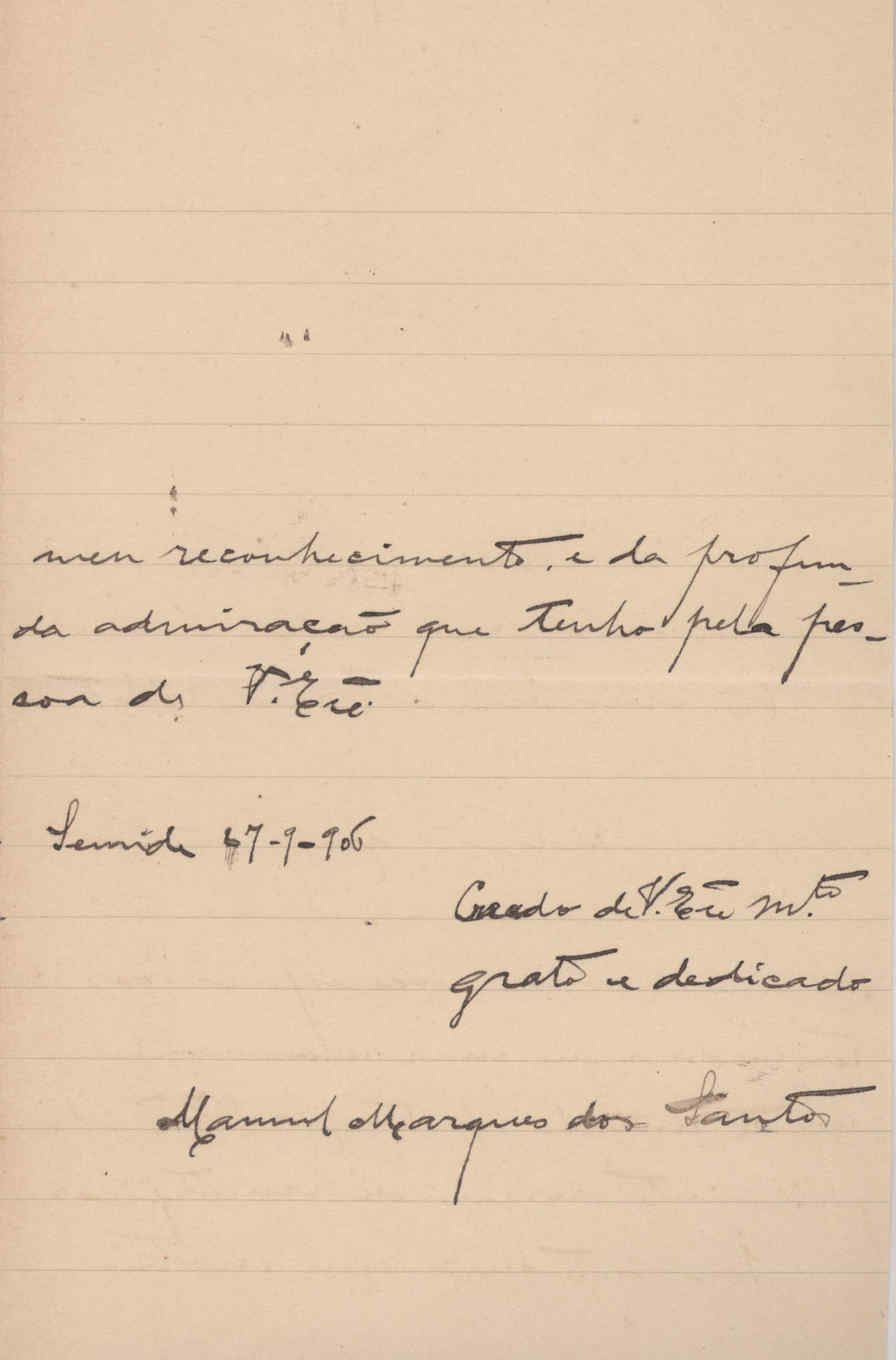 meu reconhecimento, e da profun_
da admiração que tenho pela pes_
soa de V. Exª.
Semide 17-9-906
Creado de V. Exª m.to
grato e dedicado
Manuel Marques dos Santos